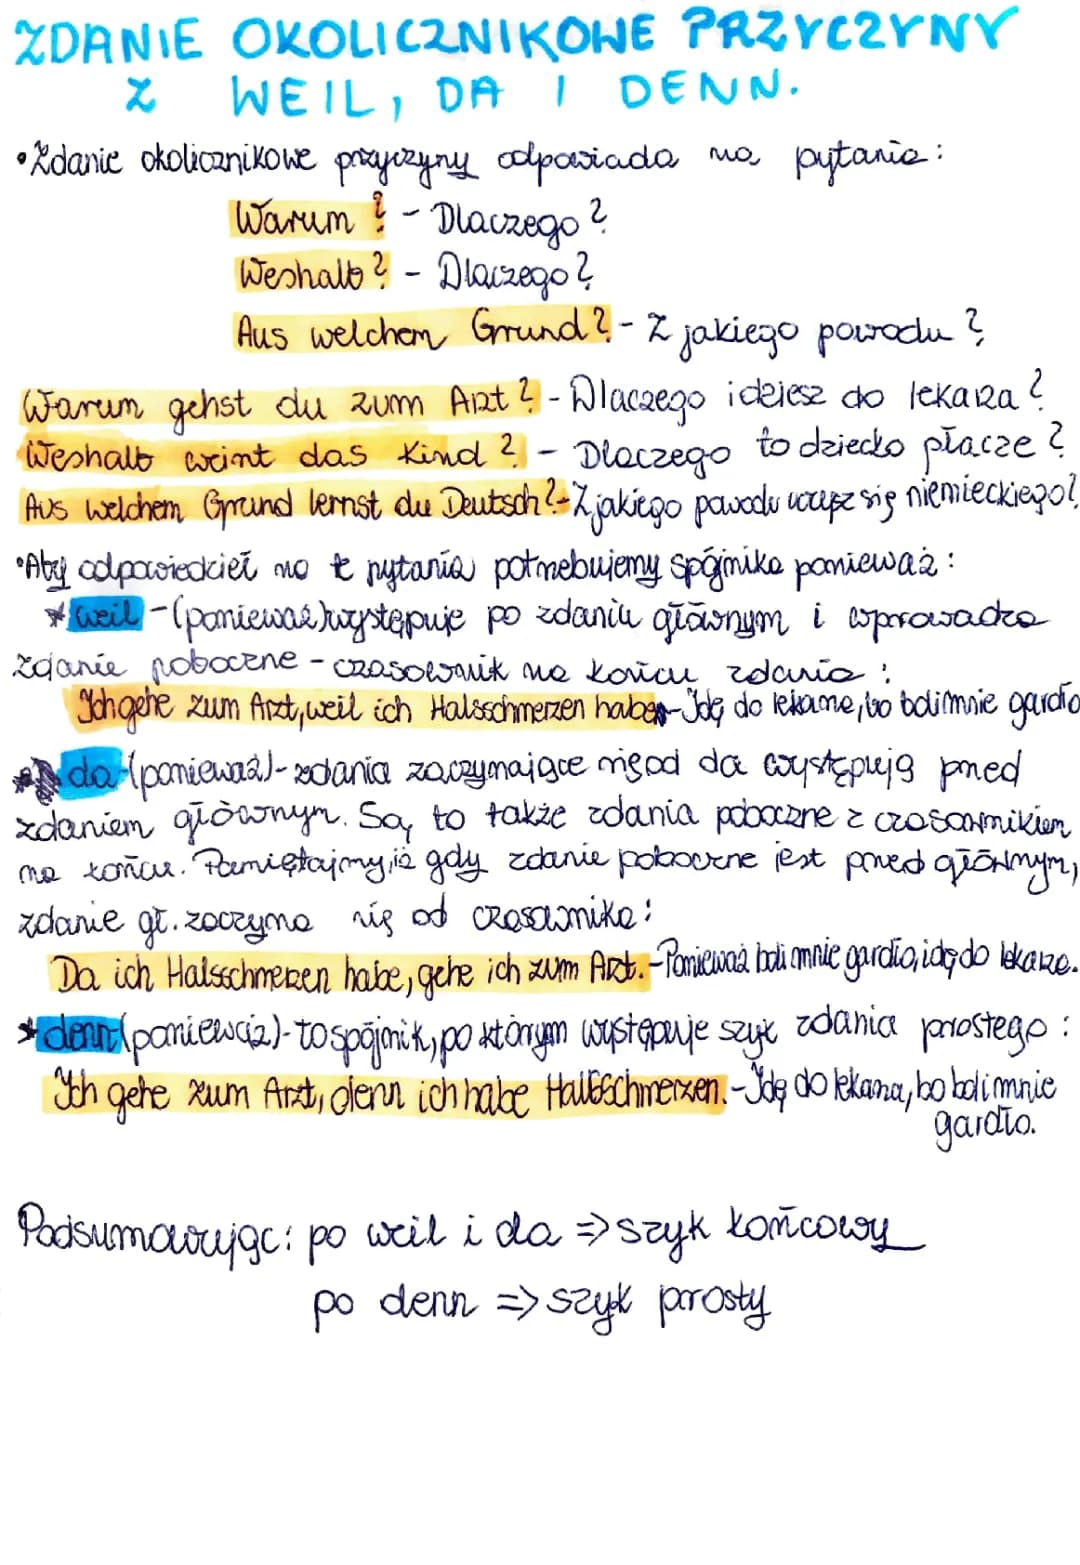 ZDANIE OKOLICZNIKOWE PRZYCZYNY
Z WEIL, DA I DENN.
•Zdanie okolicznikowe przyczyny odpowiada na pytania:
Warum? - Dlaczego?
Weshalb? - Dlaczego?
Aus welchem Grund? - Z jakiego powodu?
Warum gehst du zum Arzt? - Dlaczego idziesz do lekarza?
Weshalb weint das Kind? - Dlaczego to dziecko płacze?
Aus welchem Grund lernst du Deutsch? - Z jakiego powodu uczysz się niemieckiego?
•Aby odpowiedzieć na te pytania potrzebujemy spójnika ponieważ:
* weil - (ponieważ) występuje po zdaniu głównym i wprowadza
zdanie poboczne - czasownik na końcu zdania:
Ich gehe zum Arzt, weil ich Halsschmerzen habe. - Idę do lekarza, bo boli mnie gardło
da (ponieważ) - zdania zaczynające się od da występują przed
zdaniem głównym. Są to także zdania poboczne z czasownikiem
na końcu. Pamiętajmy, iż gdy zdanie poboczne jest przed głównym,
zdanie gł. zaczyna się od czasownika:
Da ich Halsschmerzen habe, gehe ich zum Arzt. - Ponieważ boli mnie gardło, idę do lekarza.
* denn (ponieważ) - to spójnik, po którym występuje szyk zdania prostego:
Ich gehe zum Arzt, denn ich habe Halsschmerzen. - Idę do lekarza, bo boli mnie
gardło.
Podsumowując: po weil i da => szyk końcowy
po denn => szyk prosty